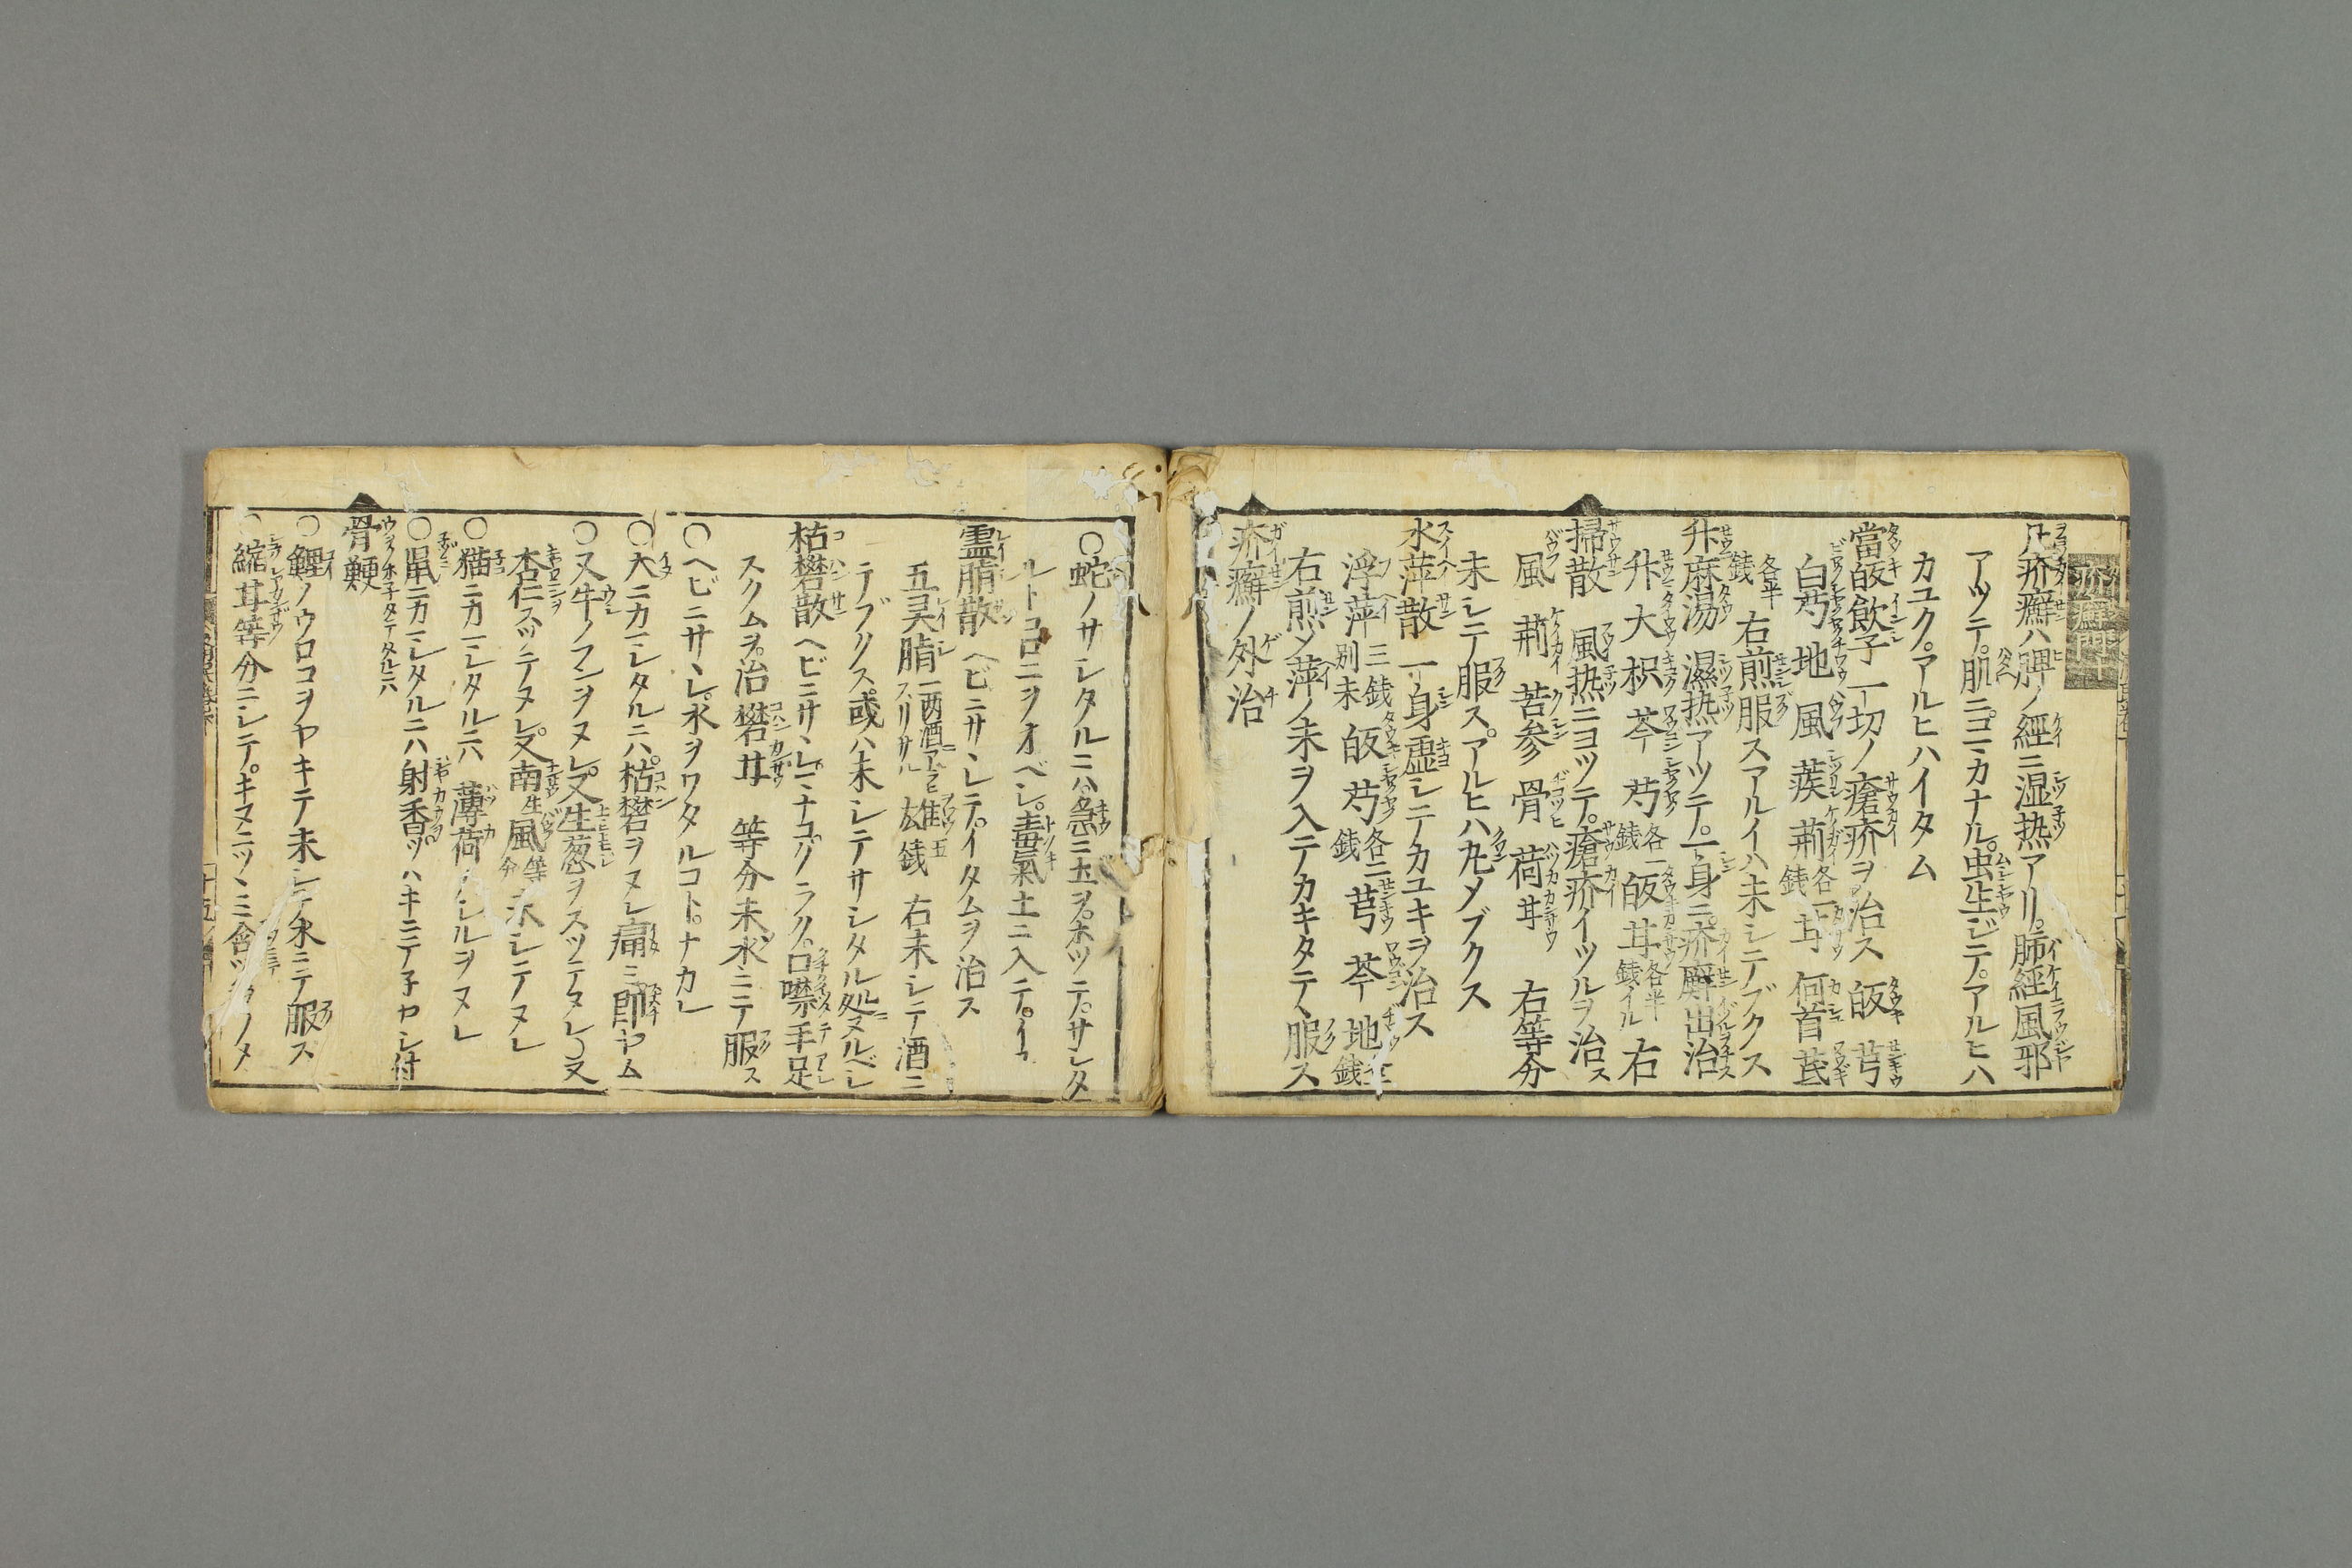 疥癬門
凡疥癬ハ脾ノ經ニ湿热アリ。肺經風邪
アツテ。肌ニコマカナル。虫生ジテ。アルヒハ
カユク。アルヒハイタム
當皈飲子 一切ノ瘡疥ヲ治ス 皈 芎
白芍 地 風 蒺 荊各一銭 甘 何首 芪
各半銭 右煎服スアルイハ末シテブクス
升麻湯 濕热アツテ。一身ニ。疥癬出治ス
升 大 枳 芩 芍各一銭 皈 甘各半銭イル 右
掃散 風热ニヨツテ。瘡疥イツルヲ治ス
風 荊 苦参 骨 荷 甘 右等分
末シテ服ス。アルヒハ丸メブクス
水萍散 一身虚シテカユキヲ治ス
浮萍三銭別末 皈 芍各二銭 芎 芩 地
右煎ノ萍ノ末ヲ入テカキタテヽ服ス
疥癬ノ外治
○蛇ノサシタルニハ。急ニ土ヲ。ホツテ。サシタ
ルトコロニヲオベシ。毒氣土ニ入テ。イユ
霊脂散 ヘビニサヽレテ。イタムヲ治ス
五灵脂一两 雄五銭 右末シテ酒ニ
テブクス。或ハ末シテサシタル処ヌルベシ
枯礬散 ヘビニサヽレ 口噤手足
スクムヲ。治 礬 甘 等分末水ニテ服ス
○ヘビニサヽレ。水ヲワタルコト。ナカレ
○犬ニカマレタルニハ。枯礬ヲヌレ痛ミ即ヤム
○又牛ノフンヲヌレ。又生葱ヲスツテヌレ○又
杏仁スツテヌレ。又南生風等分 水シテヌレ
○猫ニカマレタルニハ 薄荷ノシルヲヌレ
○鼠ニカマレタルニハ射香ヅハキニテ子ヤシ付
骨鯁 ウヲノホ子タテタルニハ
○鯉ノウロコヲヤキテ末シテ水ニテ服ス
縮 甘等分ニシテ。キヌニツヽミ含